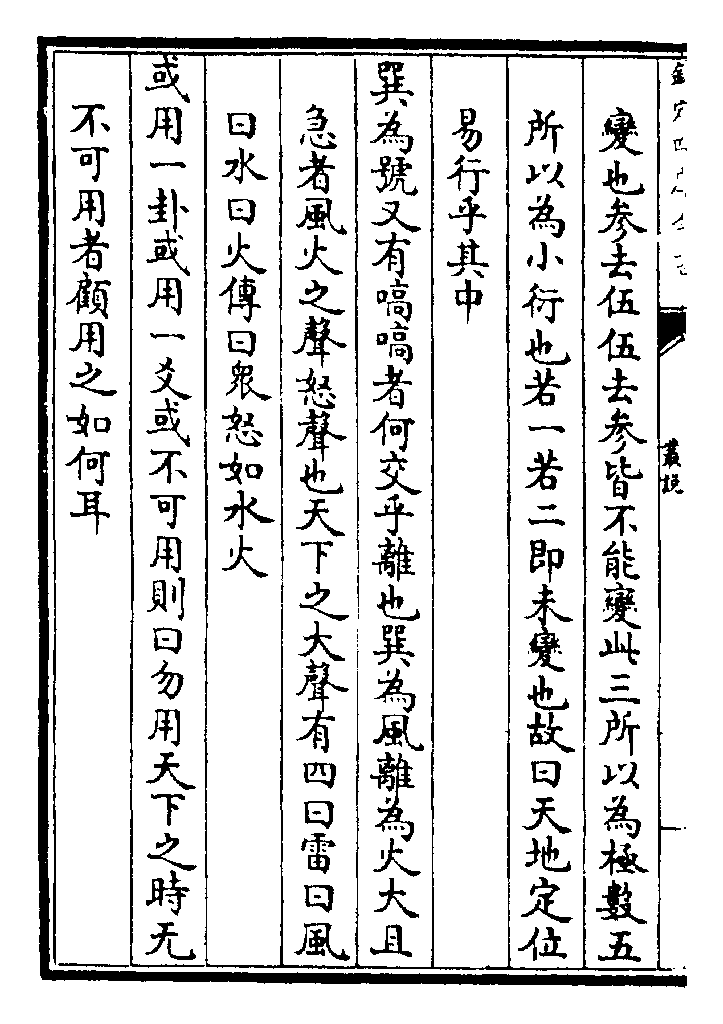 變也参去伍伍去参皆不能變此三所以為極數五
所以為小衍也若一若二即未變也故曰天地定位
易行乎其中
巽為號又有嗃嗃者何交乎離也巽為風離為火大且
急者風火之聲怒聲也天下之大聲有四曰雷曰風
曰水曰火傳曰衆怒如水火
或用一卦或用一爻或不可用則曰勿用天下之時无
不可用者顧用之如何耳
叢説